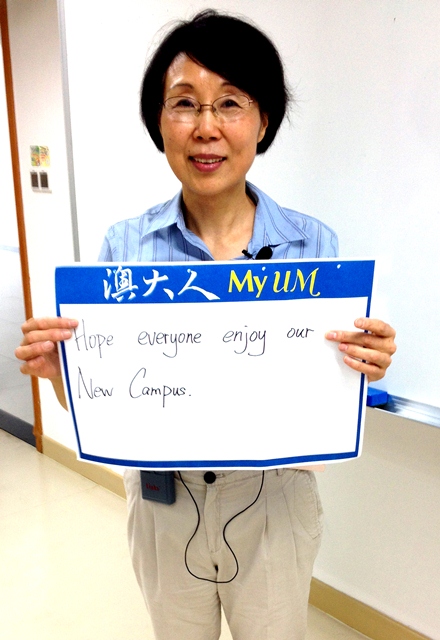 澳大人 My UM
Hope everyone enjoy our
New Campus.